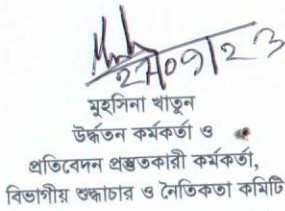 ২৭/০৭/২৩
মুহসিনা খাতুন
উর্দ্ধতন কর্মকর্তা ও
প্রতিবেদন প্রস্তুতকারী কর্মকর্তা,
বিভাগীয় শুদ্ধাচার ও নৈতিকতা কমিটি